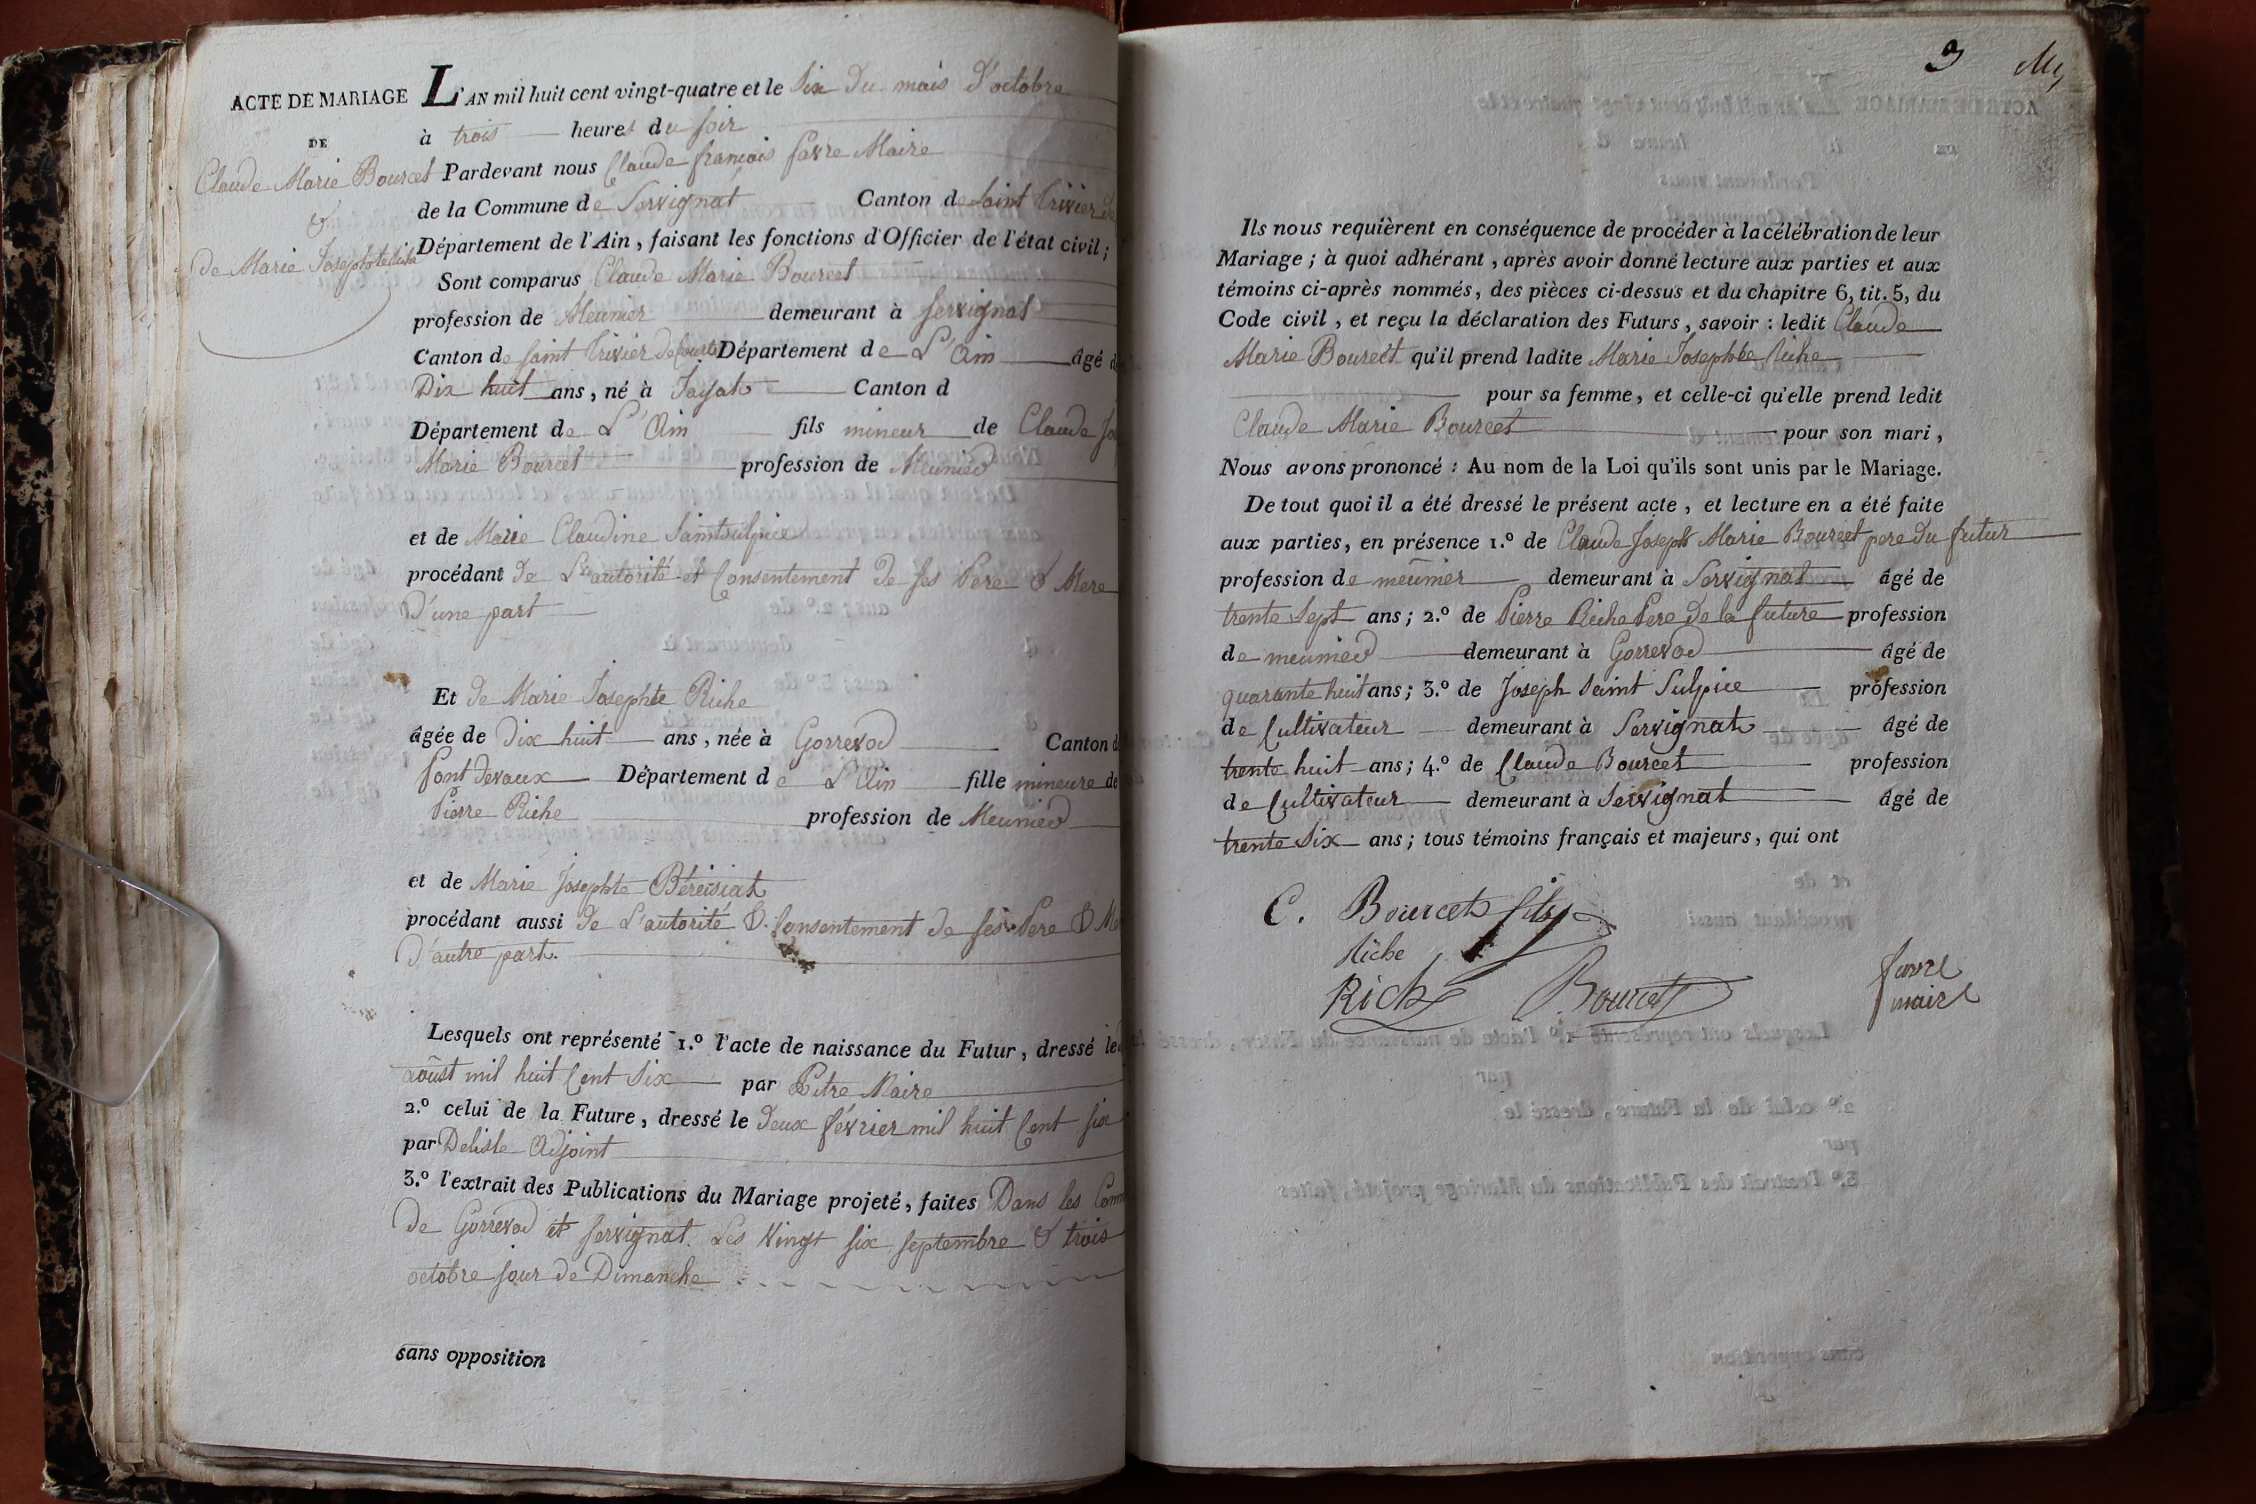 ACTE DE MARIAGE
DE
Claude Marie Bourcet
&
de Marie Josephte Riche
L'AN mil huit cent vingt-quatre et le Six du mois d'octobre
à trois heures du soir
Pardevant nous Claude françois favre Maire
de la Commune de Servignat Canton de Saint Trivier de
Département de l'Ain, faisant les fonctions d'Officier de l'état civil;
Sont comparus Claude Marie Bourcet
profession de Meunier demeurant à Servignat
Canton de Saint Trivier de Courtes Département de L'Ain âgé de
Dix huit ans, né à Jayat Canton d
Département de L'Ain fils mineur de Claude
Marie Bourcet profession de Meunier
et de Marie Claudine Saintsulpice
procédant de L'autorité et Consentement de ses Pere & Mere
D'une part
Et de Marie Josephte Riche
âgée de dix huit ans, née à Gorrevod Canton d
Pont devaux Département de L'Ain fille mineure de
Pierre Riche profession de Meunier
et de Marie Josephte Béreisiat
procédant aussi de L'autorité & Consentement de ses Pere &
D'autre part.
Lesquels ont représenté 1.º l'acte de naissance du Futur, dressé le
aoûst mil huit Cent Six par Pitre Maire
2.º celui de la Future, dressé le deux février mil huit Cent six
par Delisle Adjoint
3.º l'extrait des Publications du Mariage projeté, faites Dans les
de Gorrevod et Servignat. Les Vingt six septembre & trois
octobre jour de Dimanche
sans opposition
3
Ils nous requièrent en conséquence de procéder à la célébration de leur
Mariage; à quoi adhérant, après avoir donné lecture aux parties et aux
témoins ci-après nommés, des pièces ci-dessus et du chapitre 6, tit. 5, du
Code civil, et reçu la déclaration des Futurs, savoir: ledit Claude
Marie Bourcet qu'il prend ladite Marie Josephte Riche
pour sa femme, et celle-ci qu'elle prend ledit
Claude Marie Bourcet pour son mari,
Nous avons prononcé: Au nom de la Loi qu'ils sont unis par le Mariage.
De tout quoi il a été dressé le présent acte, et lecture en a été faite
aux parties, en présence 1.º de Claude Joseph Marie Bourcet pere du futur
profession de meunier demeurant à Servignat âgé de
trente sept ans; 2.º de Pierre Riche Pere de la future profession
de meunier demeurant à Gorrevod âgé de
quarante huit ans; 3.º de Joseph Saint Sulpice profession
de Cultivateur demeurant à Servignat âgé de
trente huit ans; 4.º de Claude Bourcet profession
de Cultivateur demeurant à Servignat âgé de
trente Six ans; tous témoins français et majeurs, qui ont
C. Bourcet fils
Riche
Riche Bourcet
favre
maire